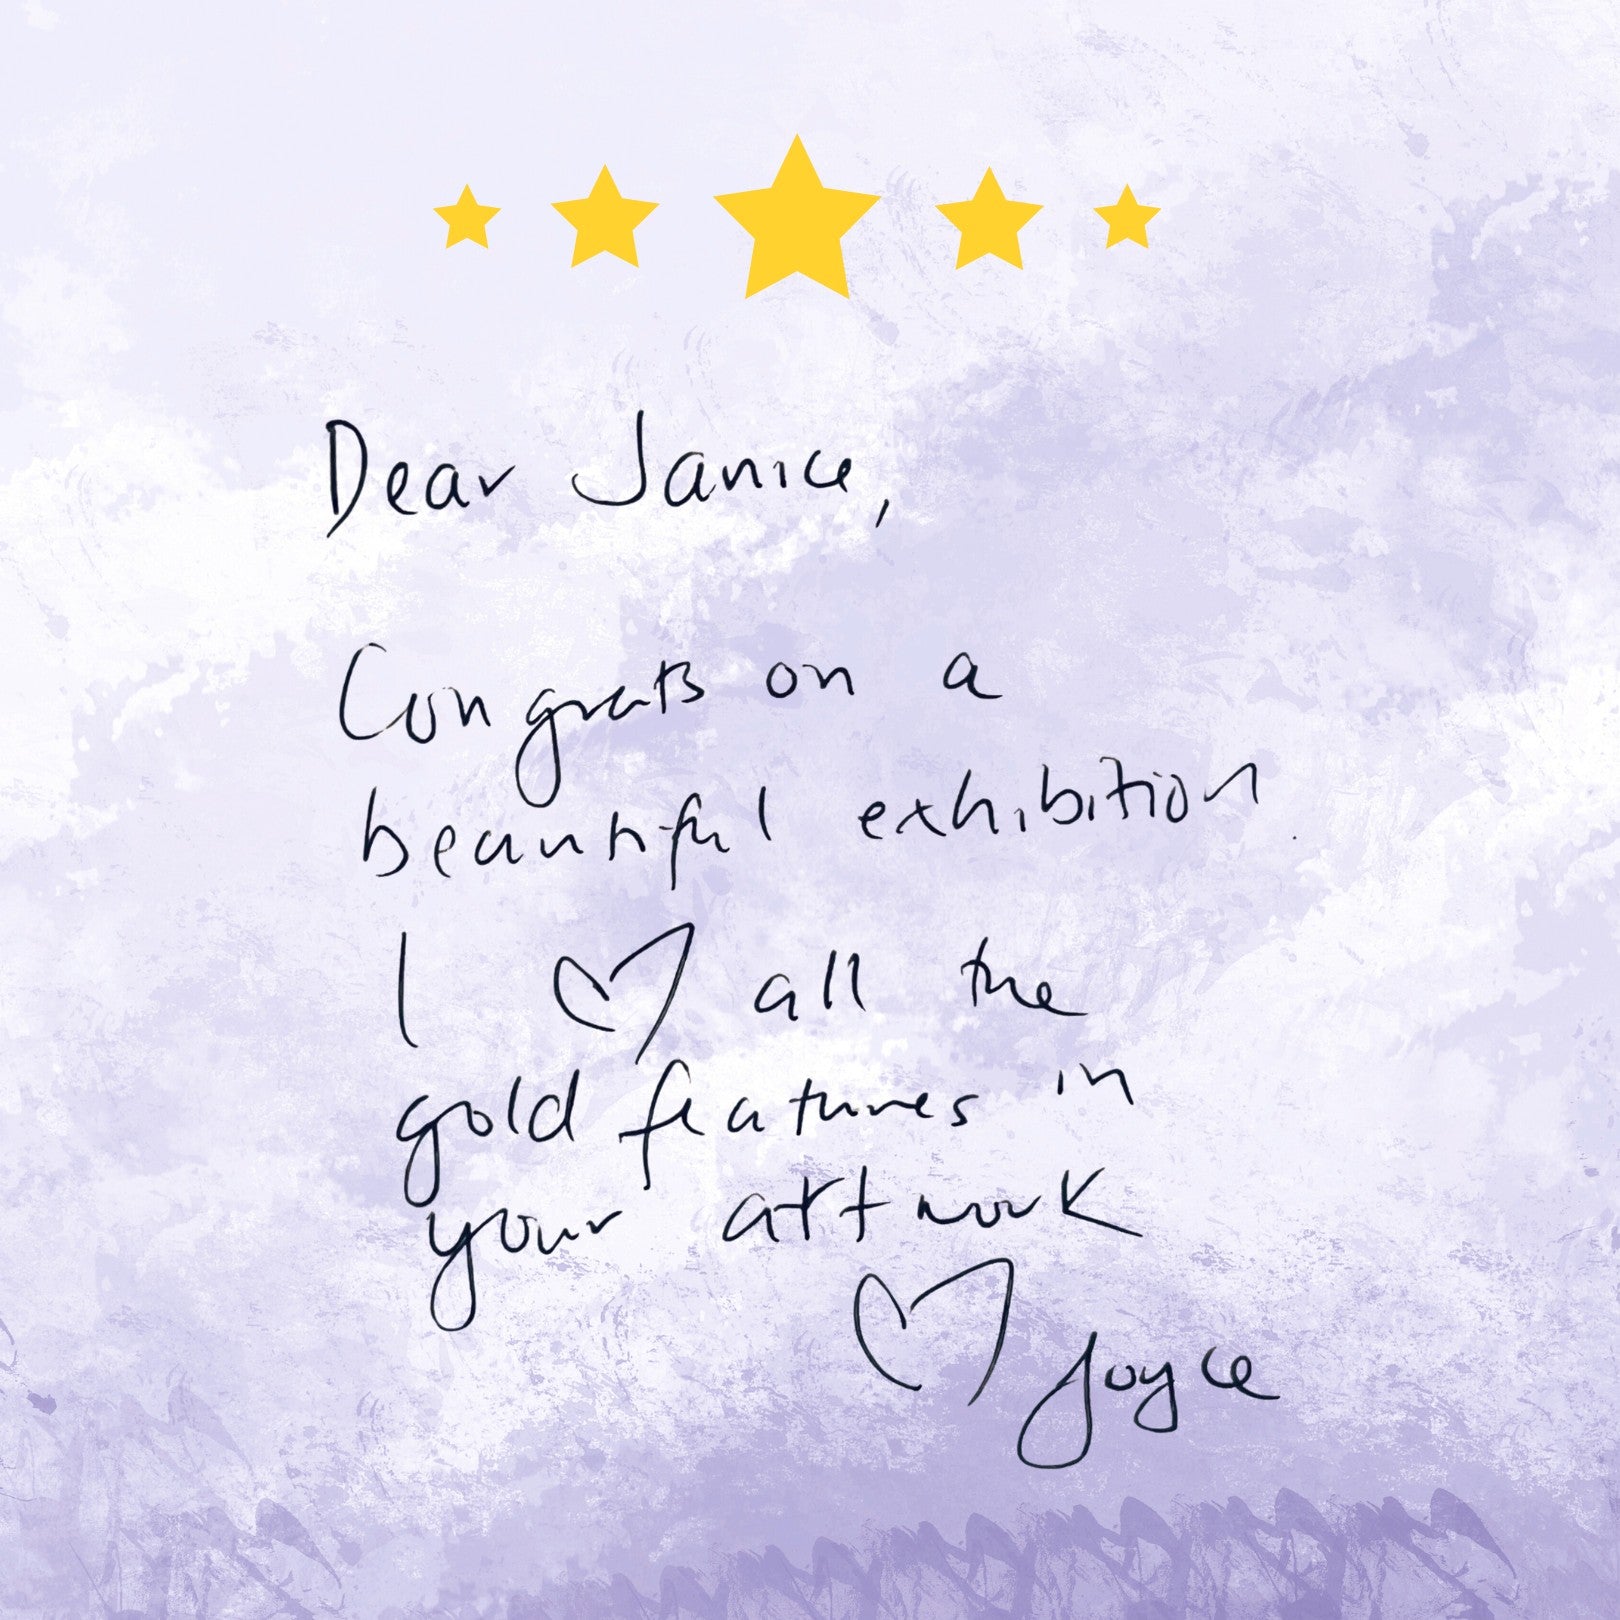 Dear Janice,
Congrats on a
beautiful exhibition.
I ♡ all the
gold features in
your artwork
♡ Joyce